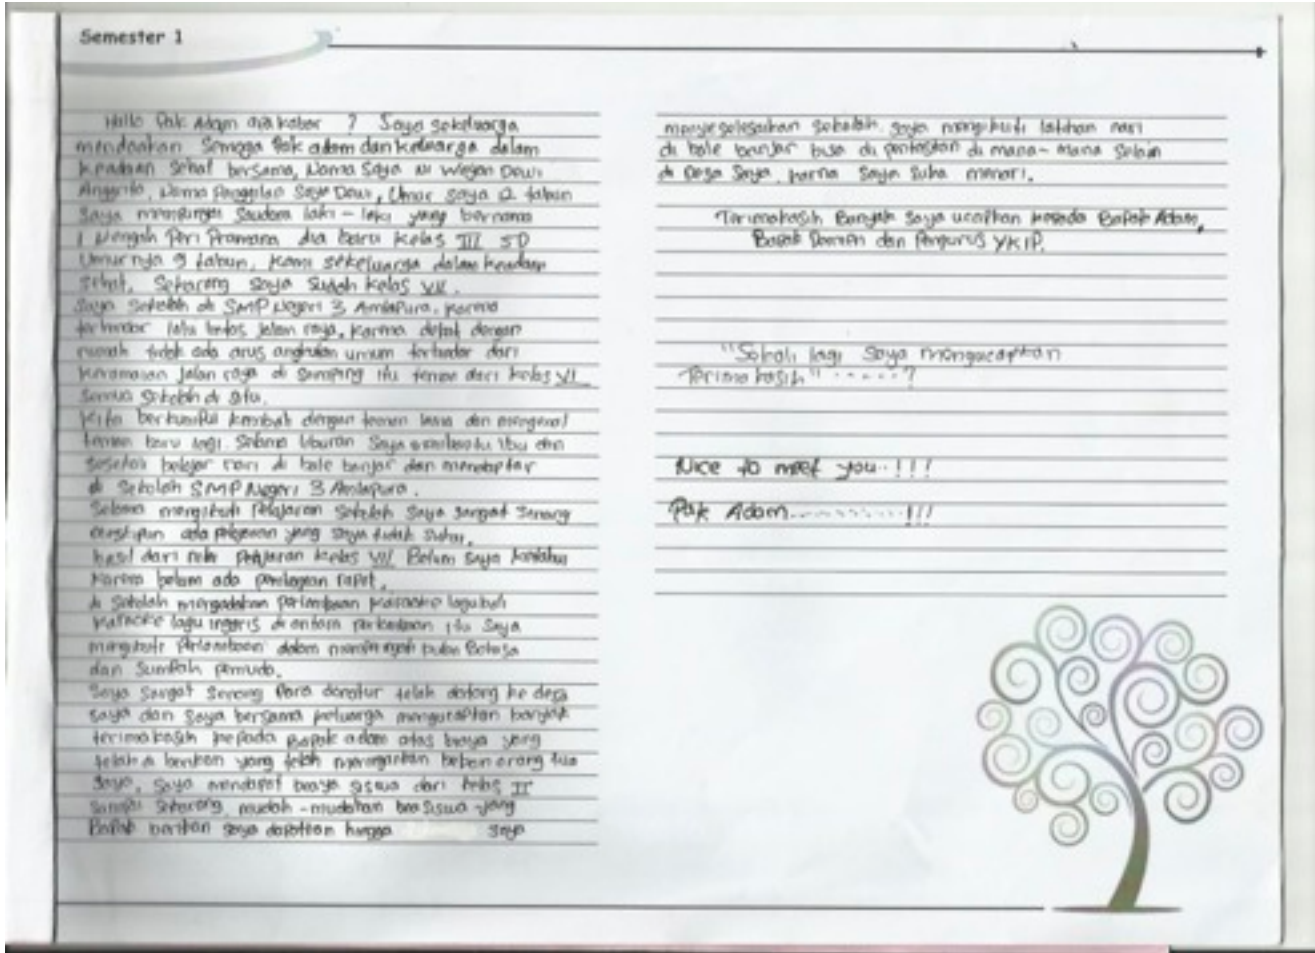 Semester 1
Hallo Pak Adam apa kabar ? Saya sekeluarga
mendoakan Semoga Pak adam dan keluarga dalam
keadaan Sehat bersama, Nama Saya Ni Wayan Dewi
Anggrita, Nama Panggilan Saya Dewi, Umur saya 12 tahun
Saya mempunyai Saudara laki-laki yang bernama
I Nengah Peri Pramana dia baru kelas III SD
Umurnya 9 tahun, Kami sekeluarga dalam keadaan
sehat, Sekarang saya Sudah kelas VII.
Saya Sekolah di SMP Negeri 3 Amlapura. Karena
terhindar lalu lintas jalan raya, Karena dekat dengan
rumah tidak ada arus angkutan umum terhindar dari
keramaian jalan raya di Samping itu teman dari kelas VI
Semua Sekolah di situ.
kita berkumpul kembali dengan teman lama dan mengenal
teman baru lagi. Selama liburan Saya membantu Ibu dan
belajar nari di bale banjar dan mendaptar
di Sekolah SMP Negeri 3 Amlapura.
Selama mengikuti Pelajaran Sekolah Saya Sangat Senang
meskipun ada pelajaran yang Saya tidak Sukai,
hasil dari Pelajaran kelas VII Belum Saya
Karena belum ada pembagian rapot.
di Sekolah mengadakan perlombaan karaoke lagu bali
karaoke lagu inggris di antara itu Saya
mengikuti Perlombaan dalam bulan Bahasa
dan Sumpah Pemuda.
Saya Sangat Senang Para donatur telah datang ke desa
saya dan Saya bersama keluarga mengucapkan banyak
terimakasih kepada Bapak adam atas biaya yang
telah di berikan yang telah meringankan beban orang tua
Saya, Saya mendapat beaya siswa dari kelas II
Sampai Sekarang, mudah-mudahan beasiswa yang
Bapak berikan Saya dapatkan hingga Saya
menyeselesaikan Sekolah. Saya mengikuti latihan nari
di bale banjar bisa di pentaskan di mana-mana Selain
di Desa Saya, karna Saya Suka menari.
Terimakasih Banyak Saya ucapkan kepada Bapak Adam,
Bapak dan Pengurus YKIP.
"Sekali lagi Saya mengucapkan
Terima kasih" ......?
Nice to meet you..!!!
Pak Adam...........!!!